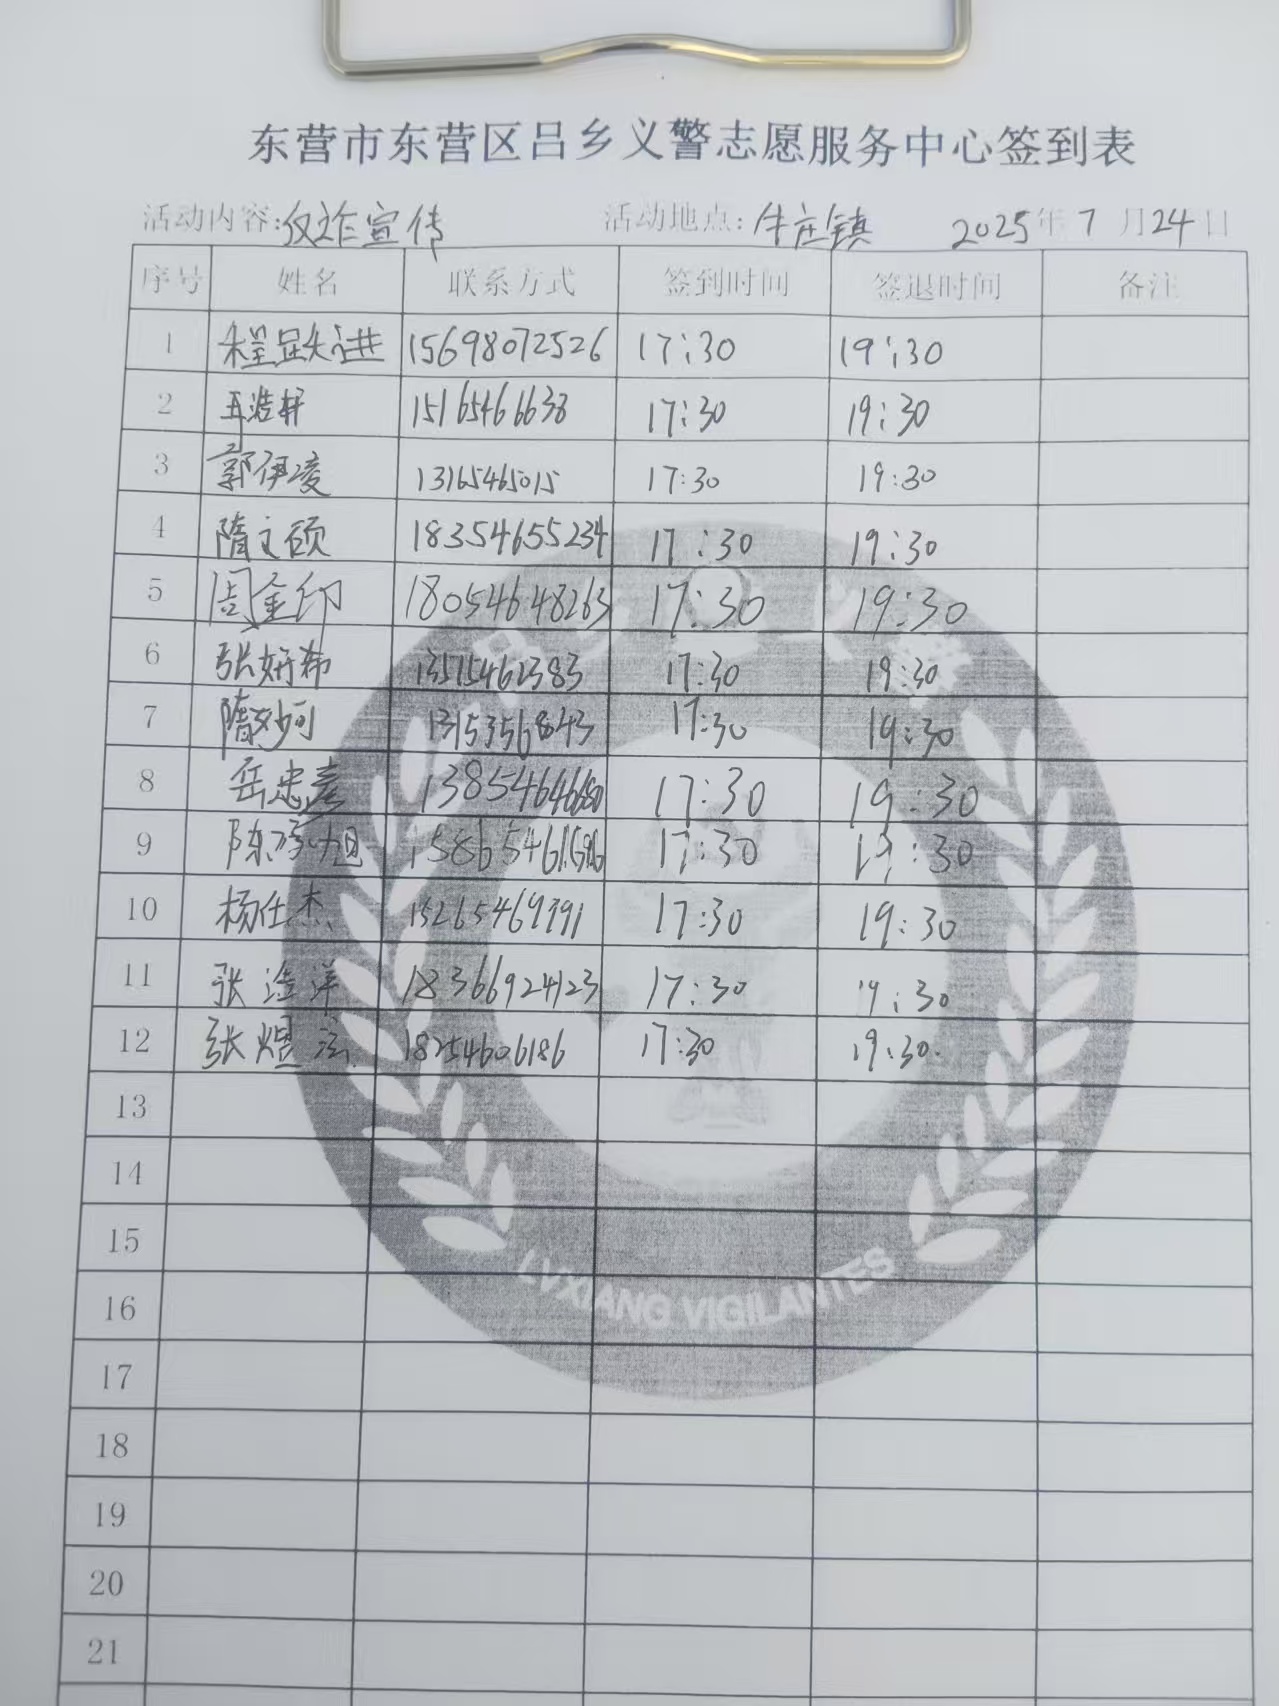 东营市东营区吕乡义警志愿服务中心签到表
活动内容:反诈宣传 活动地点:牛庄镇 2025年7月24日
序号 姓名 联系方式 签到时间 签退时间 备注
1 程显进 15698072526 17:30 19:30
2 王浩轩 15165466638 17:30 19:30
3 郭伊凌 13165465015 17:30 19:30
4 隋文硕 18354655234 17:30 19:30
5 周金印 18054648263 17:30 19:30
6 张妍希 17:30 19:30
7 隋妙珂 17:30 19:30
8 岳忠彦 17:30 19:30
9 陈 旭 17:30 19:30
10 杨仕杰 17:30 19:30
11 张 洋 18366924123 17:30 19:30
12 张煜 18254606186 17:30 19:30
13
14
15
16
17
18
19
20
21
LVXIANG VIGILANTES